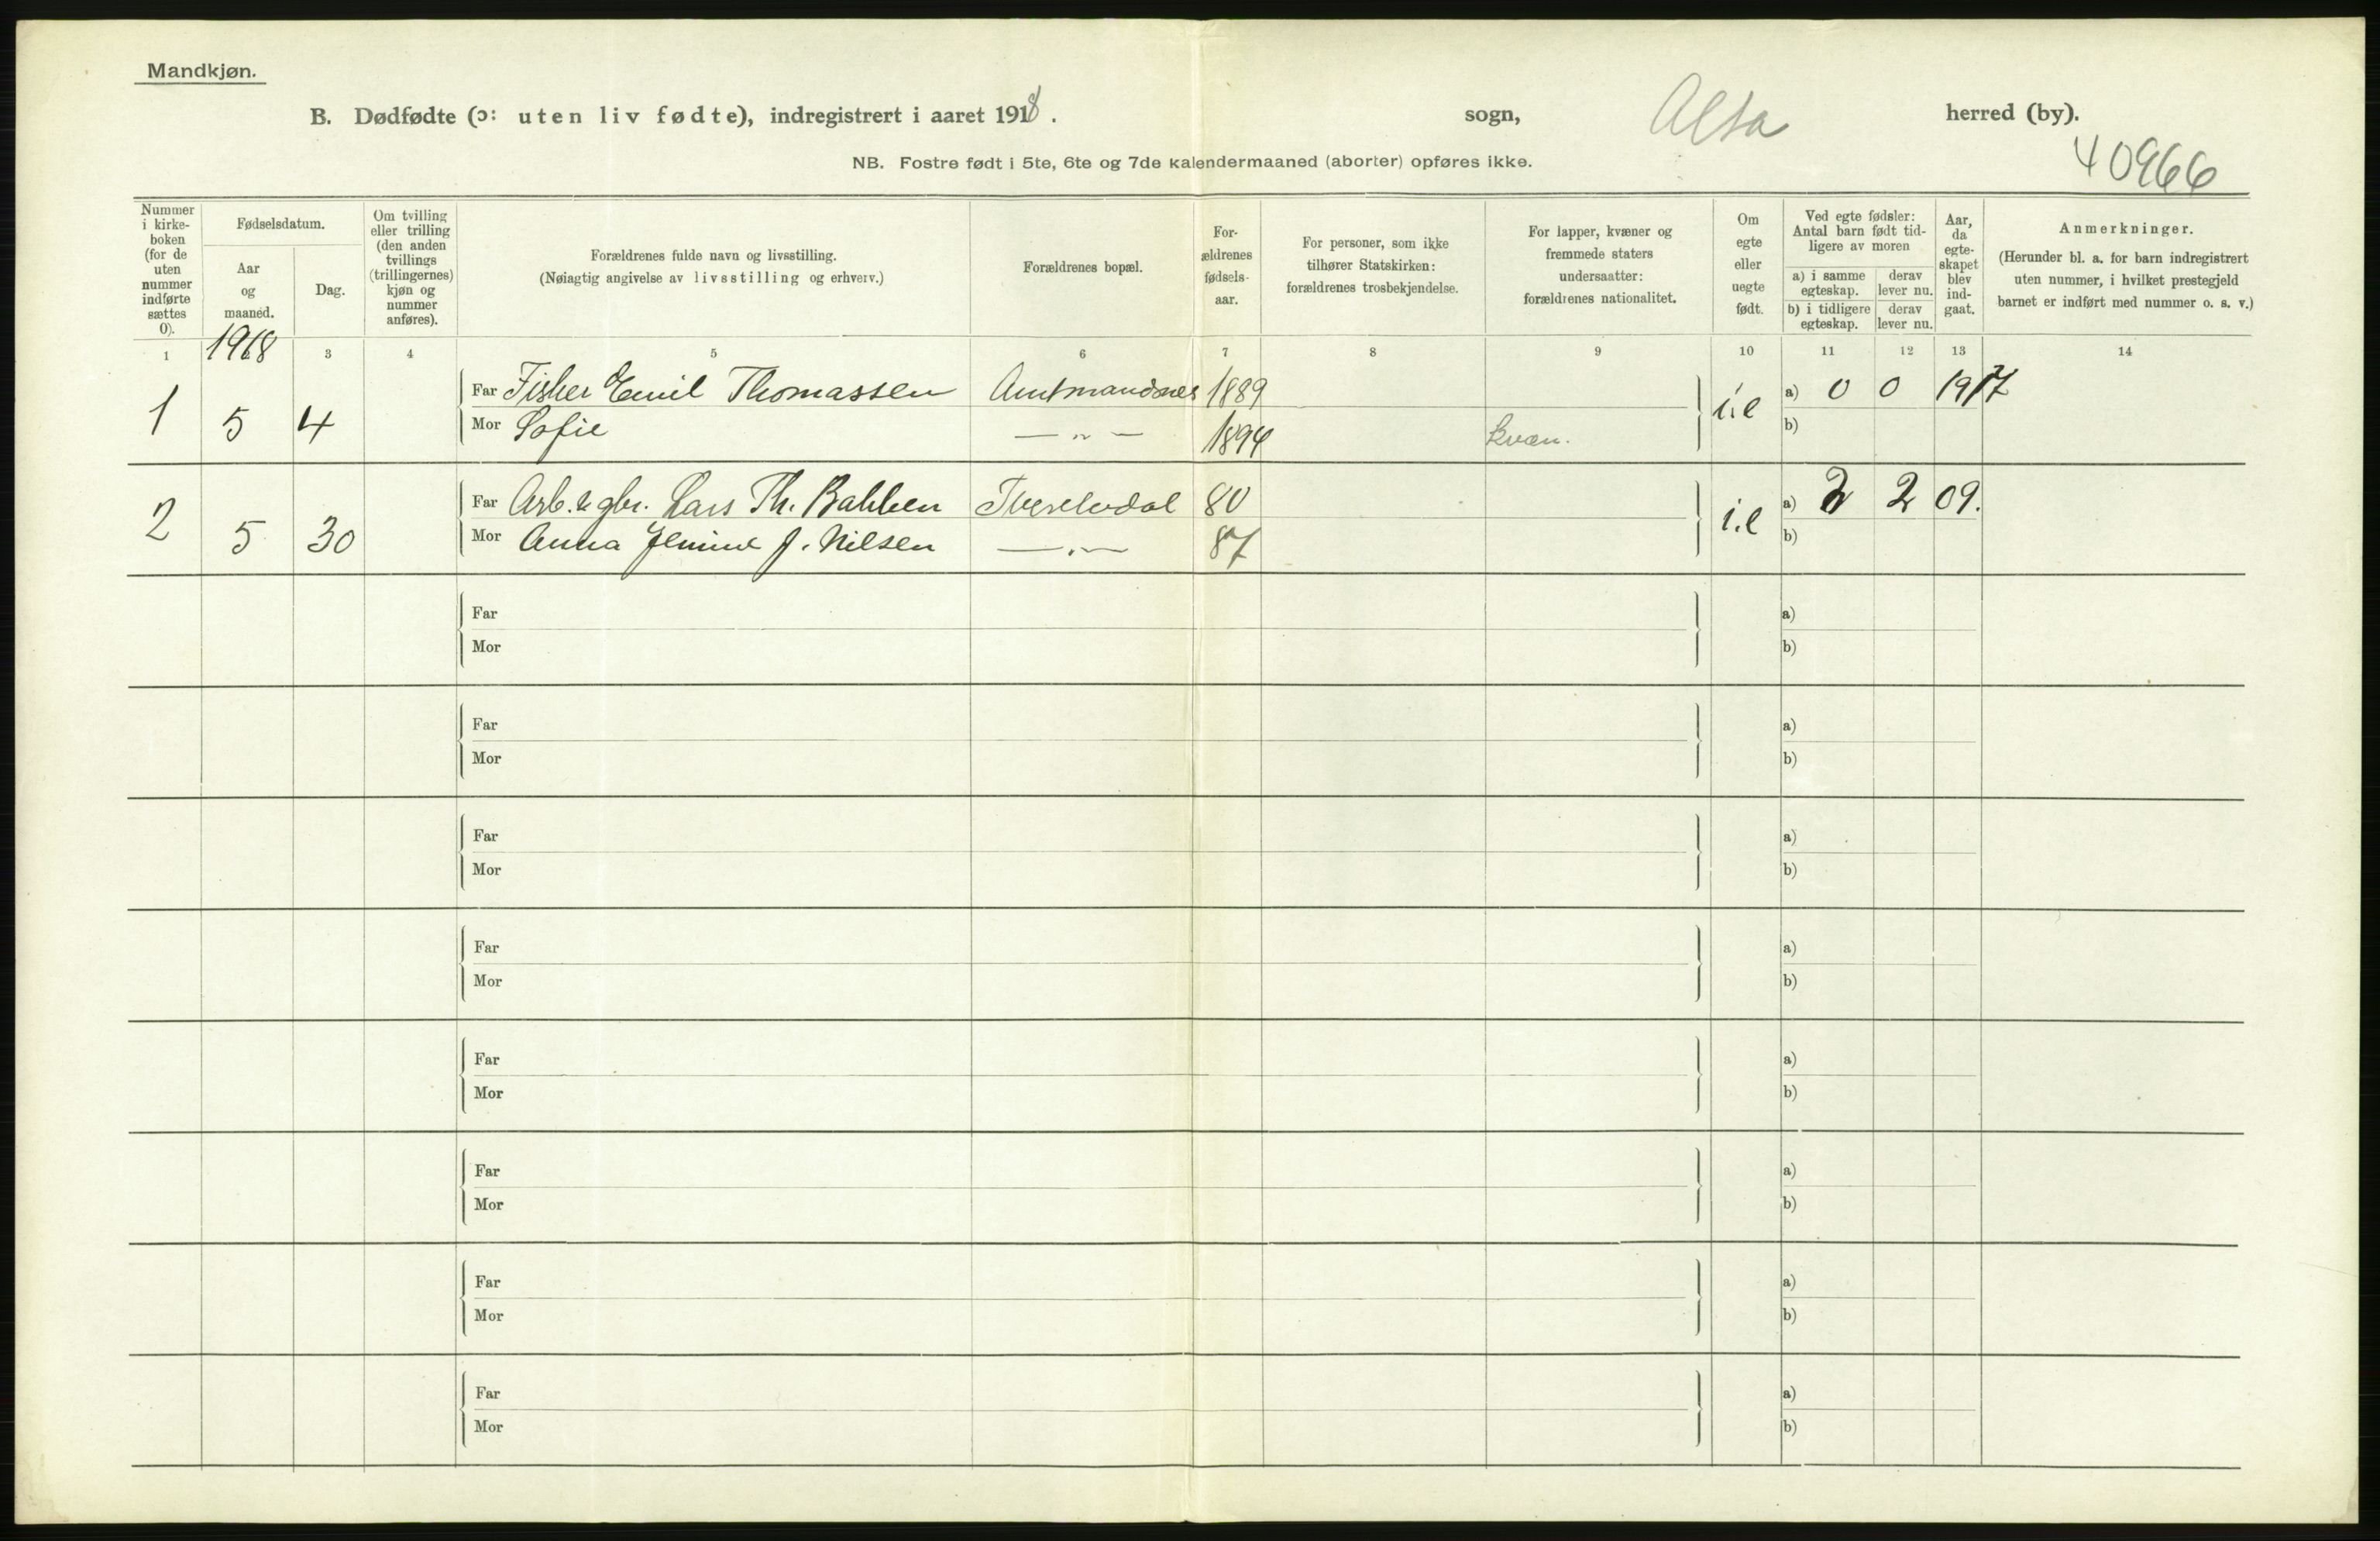 Mandkjøn.
B. Dødfødte (ɔ: uten liv fødte), indregistrert i aaret 1918.
sogn, Alta herred (by).
NB. Fostre født i 5te, 6te og 7de kalendermaaned (aborter) opføres ikke.
40966
Nummer i kirke-boken (for de uten nummer indførte sættes 0).
Fødselsdatum.
Aar og maaned.
Dag.
Om tvilling eller trilling (den anden tvillings (trillingernes) kjøn og nummer anføres).
Forældrenes fulde navn og livsstilling.
(Nøiagtig angivelse av livsstilling og erhverv.)
Forældrenes bopæl.
For-ældrenes fødsels-aar.
For personer, som ikke tilhører Statskirken: forældrenes trosbekjendelse.
For lapper, kvæner og fremmede staters undersaatter: forældrenes nationalitet.
Om egte eller uegte født.
Ved egte fødsler: Antal barn født tid-ligere av moren
a) i samme egteskap.
derav lever nu.
b) i tidligere egteskap.
derav lever nu.
Aar, da egte-skapet blev ind-gaat.
Anmerkninger.
(Herunder bl. a. for barn indregistrert uten nummer, i hvilket prestegjeld barnet er indført med nummer o. s. v.)
1 1918 3 4 5 6 7 8 9 10 11 12 13 14
1 5 4 Far Fisher Emil Thomassen Amtmandsnes 1889 i.e a) 0 0 1917
Mor Sofie — „ — 1894 kvæn. b)
2 5 30 Far Arb. & gbr. Lars Th. Bakken Tverelvdal 80 i.e a) 2 2 09.
Mor Anna J. Nilsen — „ — 87 b)
Far a)
Mor b)
Far a)
Mor b)
Far a)
Mor b)
Far a)
Mor b)
Far a)
Mor b)
Far a)
Mor b)
Far a)
Mor b)
Far a)
Mor b)